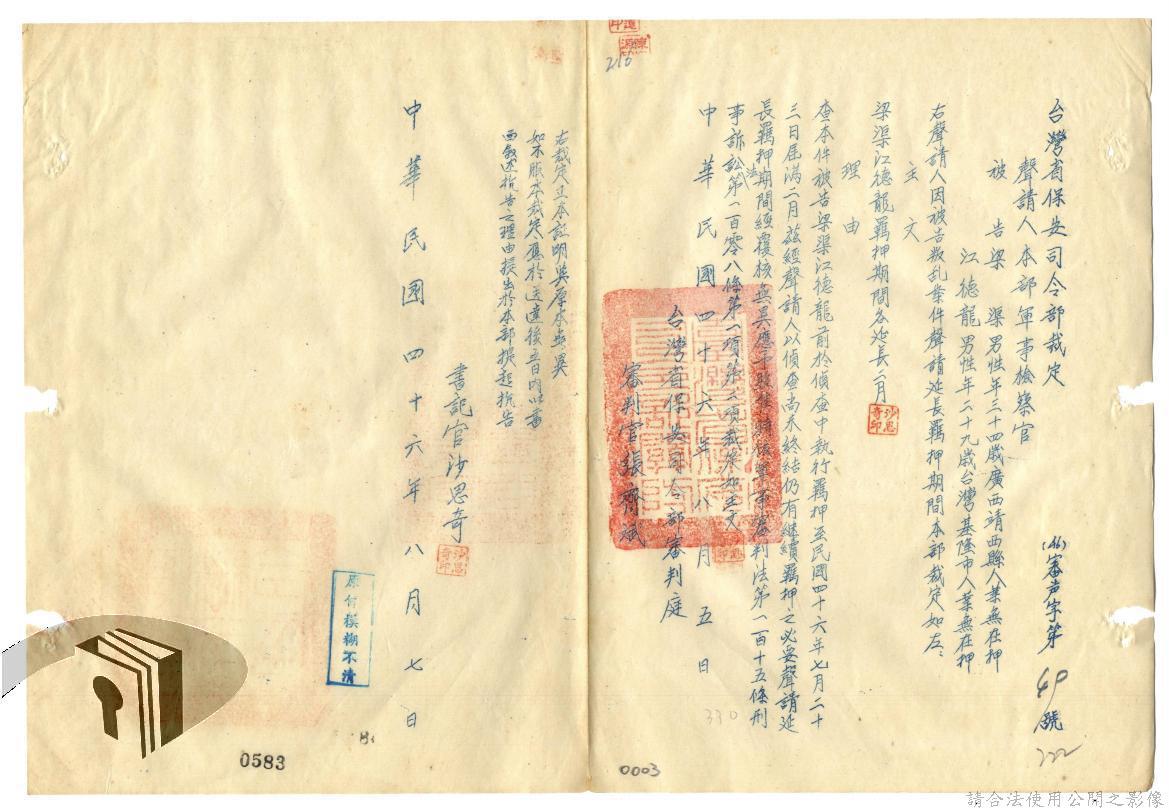 台灣省保安司令部裁定
(46)審声字第49號
聲請人 本部軍事檢察官
被告 梁渠 男性年三十四歲廣西靖西縣人業無在押
江德龍 男性年二十九歲台灣基隆市人業無在押
右聲請人因被告叛乱案件聲請延長羈押期間本部裁定如左：
主文
梁渠江德龍羈押期間各延長二月
理由
查本件被告梁渠江德龍前於偵查中執行羈押至民國四十六年七月二十
三日屆滿二月茲經聲請人以偵查尚未終結仍有繼續羈押之必要聲請延
長羈押期間經覆核無異應予照准軍事審判法第一百十五條刑
事訴訟法第一百零八條第一項第二項裁定如主文
中華民國四十六年八月五日
台灣省保安司令部審判庭
審判官張齊斌
右裁定正本證明與原本無異
如不服本裁定應於送達後五日內以書
面敘述抗告之理由提出於本部提起抗告
書記官沙思奇
中華民國四十六年八月七日
沙思奇印
沙思奇印
原件模糊不清
216
330
222
0583
0003
請合法使用公開之影像